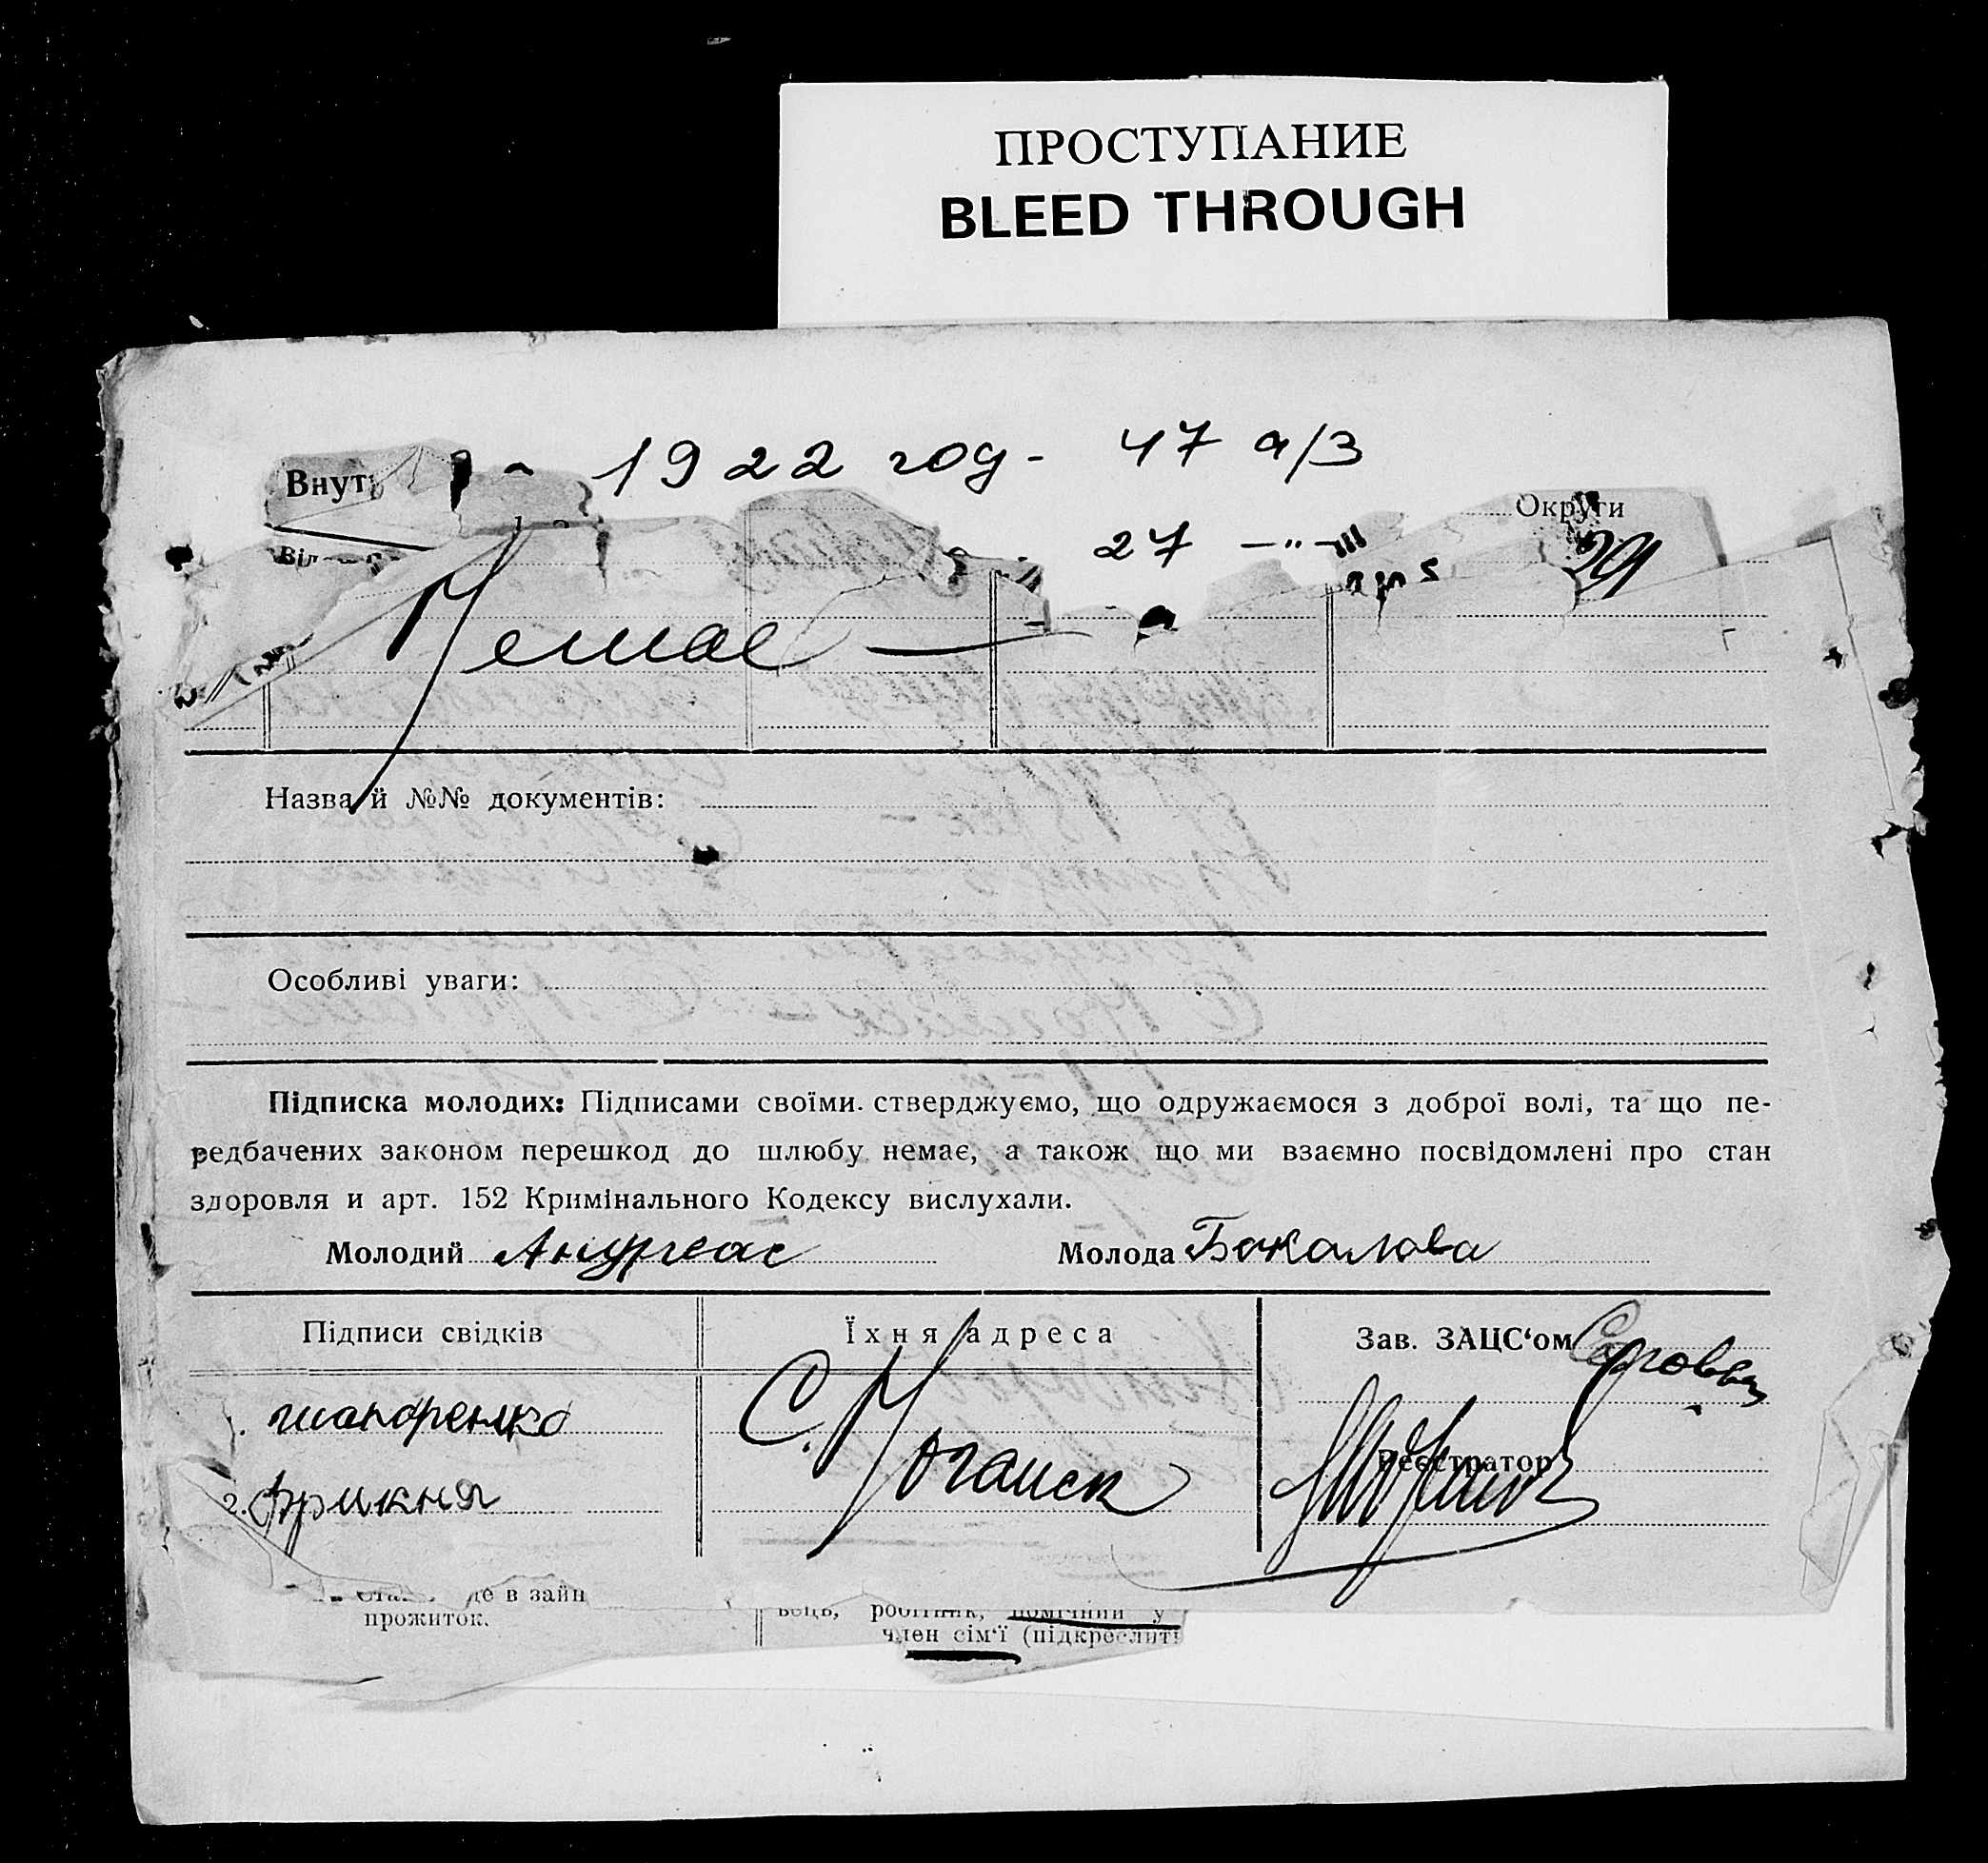 ПРОСТУПАНИЕ
BLEED THROUGH
1922 год - 47 а/з
Внут
Округи
27 —"—
39
Немає —
Назва й №№ документів:
Особливі уваги:
Підписка молодих: Підписами своїми стверджуємо, що одружаємося з доброї волі, та що пе-
редбачених законом перешкод до шлюбу немає, а також що ми взаємно посвідомлені про стан
здоровля и арт. 152 Кримінального Кодексу вислухали.
Молодий Андреас Молода Бакалова
Підписи свідків Їхня адреса Зав. ЗАЦС‘ом
2. С. Могаиск Реєстратор
де в зайн
прожиток.
вець, робітник, помічний у
член сім‘ї (підкреслити